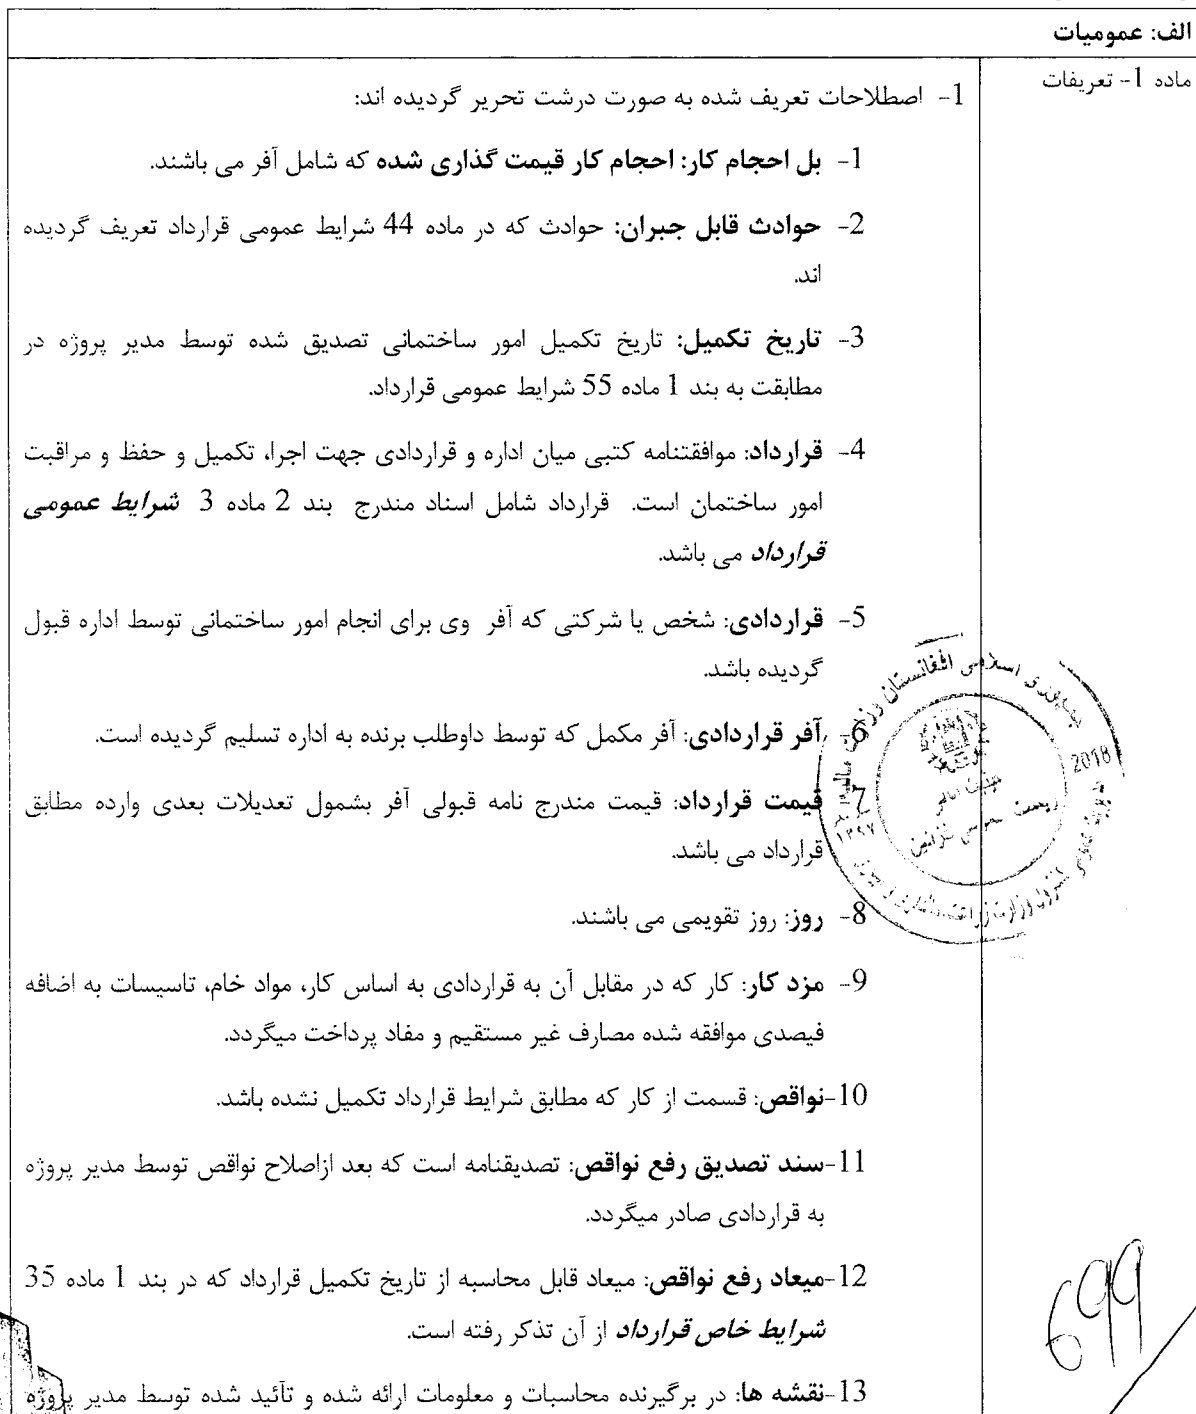 الف: عمومیات
ماده 1- تعریفات
1- اصطلاحات تعریف شده به صورت درشت تحریر گردیده اند:
1- بل احجام کار: احجام کار قیمت گذاری شده که شامل آفر می باشند.
2- حوادث قابل جبران: حوادث که در ماده 44 شرایط عمومی قرارداد تعریف گردیده
اند.
3- تاریخ تکمیل: تاریخ تکمیل امور ساختمانی تصدیق شده توسط مدیر پروژه در
مطابقت به بند 1 ماده 55 شرایط عمومی قرارداد.
4- قرارداد: موافقتنامه کتبی میان اداره و قراردادی جهت اجرا، تکمیل و حفظ و مراقبت
امور ساختمان است. قرارداد شامل اسناد مندرج بند 2 ماده 3 شرایط عمومی
قرارداد می باشد.
5- قراردادی: شخص یا شرکتی که آفر وی برای انجام امور ساختمانی توسط اداره قبول
گردیده باشد.
6- آفر قراردادی: آفر مکمل که توسط داوطلب برنده به اداره تسلیم گردیده است.
7- قیمت قرارداد: قیمت مندرج نامه قبولی آفر بشمول تعدیلات بعدی وارده مطابق
قرارداد می باشد.
8- روز: روز تقویمی می باشند.
9- مزد کار: کار که در مقابل آن به قراردادی به اساس کار، مواد خام، تاسیسات به اضافه
فیصدی موافقه شده مصارف غیر مستقیم و مفاد پرداخت میگردد.
10-نواقص: قسمت از کار که مطابق شرایط قرارداد تکمیل نشده باشد.
11-سند تصدیق رفع نواقص: تصدیقنامه است که بعد ازاصلاح نواقص توسط مدیر پروژه
به قراردادی صادر میگردد.
12-میعاد رفع نواقص: میعاد قابل محاسبه از تاریخ تکمیل قرارداد که در بند 1 ماده 35
شرایط خاص قرارداد از آن تذکر رفته است.
13-نقشه ها: در برگیرنده محاسبات و معلومات ارائه شده و تآئید شده توسط مدیر پروژه
اسلامی افغانستان
2018
۱۳۹۷
699